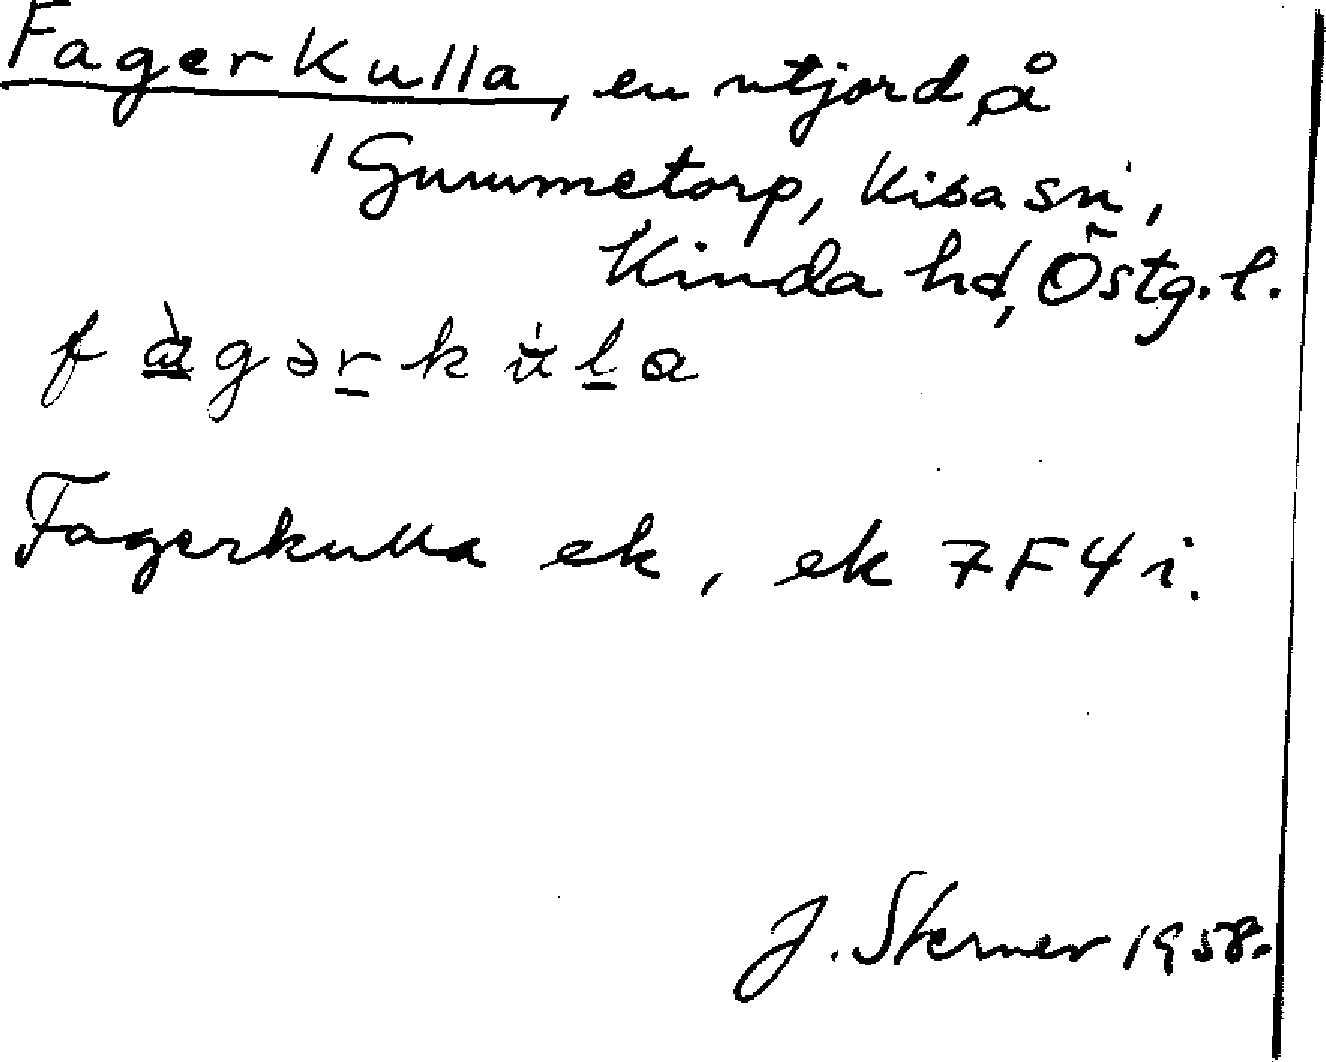 Fagerkulla, en utjord å
1 Gummetorp, Kisa sn,
Kinda hd, Östg. l.
fàgərkùla
Fagerkulla ek, ek 7F4i.
J. Sterner 1958.